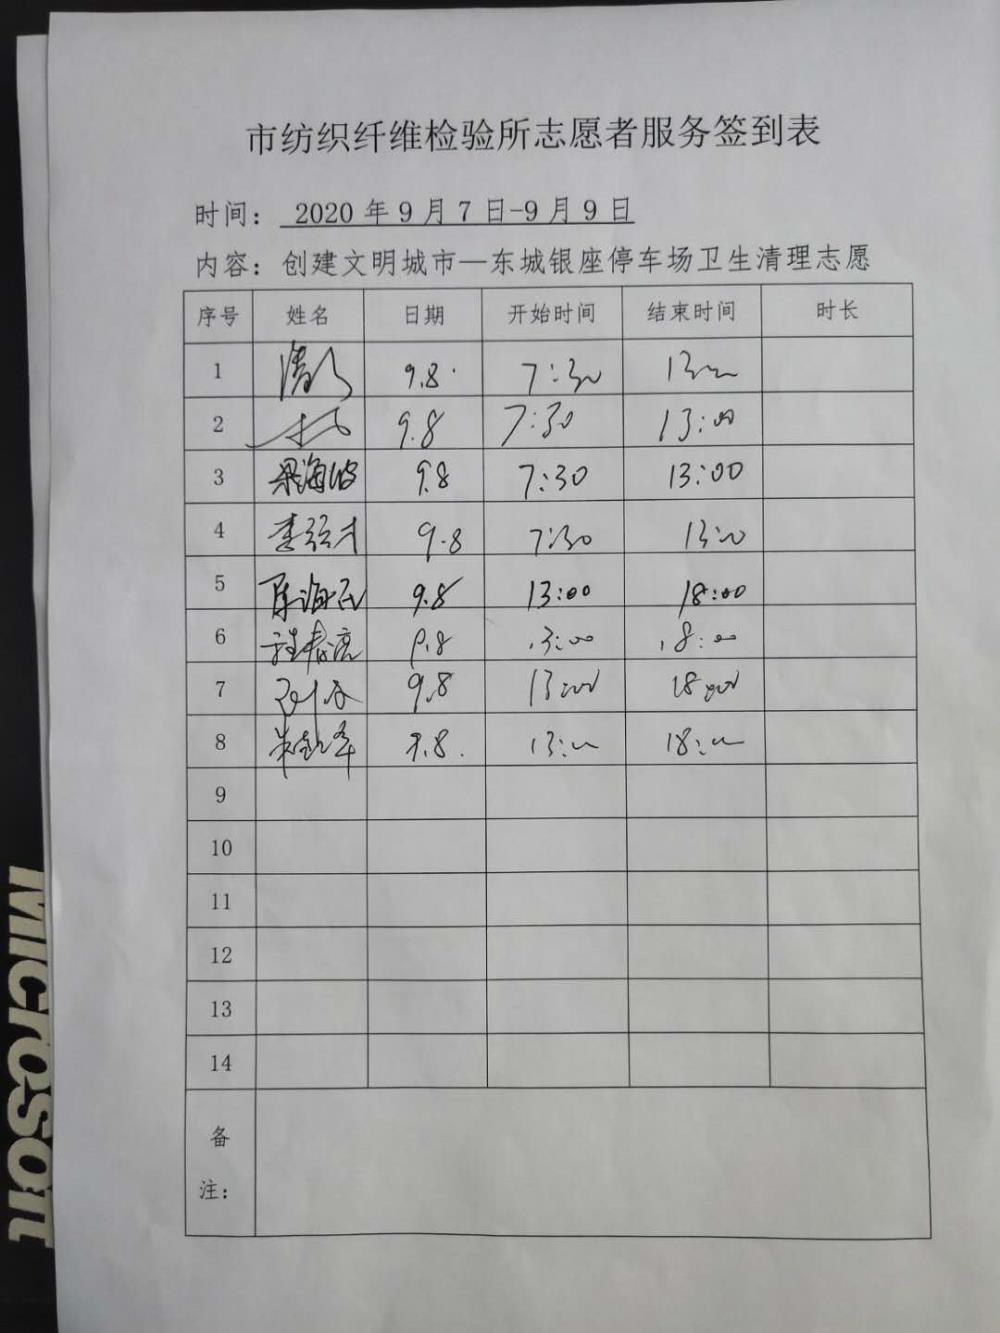 市纺织纤维检验所志愿者服务签到表
时间： 2020 年 9 月 7 日-9 月 9 日
内容：创建文明城市—东城银座停车场卫生清理志愿
序号 姓名 日期 开始时间 结束时间 时长
1 9.8 7:30
2 9.8 7:30 13:00
3 梁海波 9.8 7:30 13:00
4 9.8 7:30 13:00
5 陈海民 9.8 13:00 18:00
6 程春亮 9.8 13:00 18:00
7 9.8 13:00 18:00
8 9.8. 13:00 18:00
9
10
11
12
13
14
备
注：
Microsoft